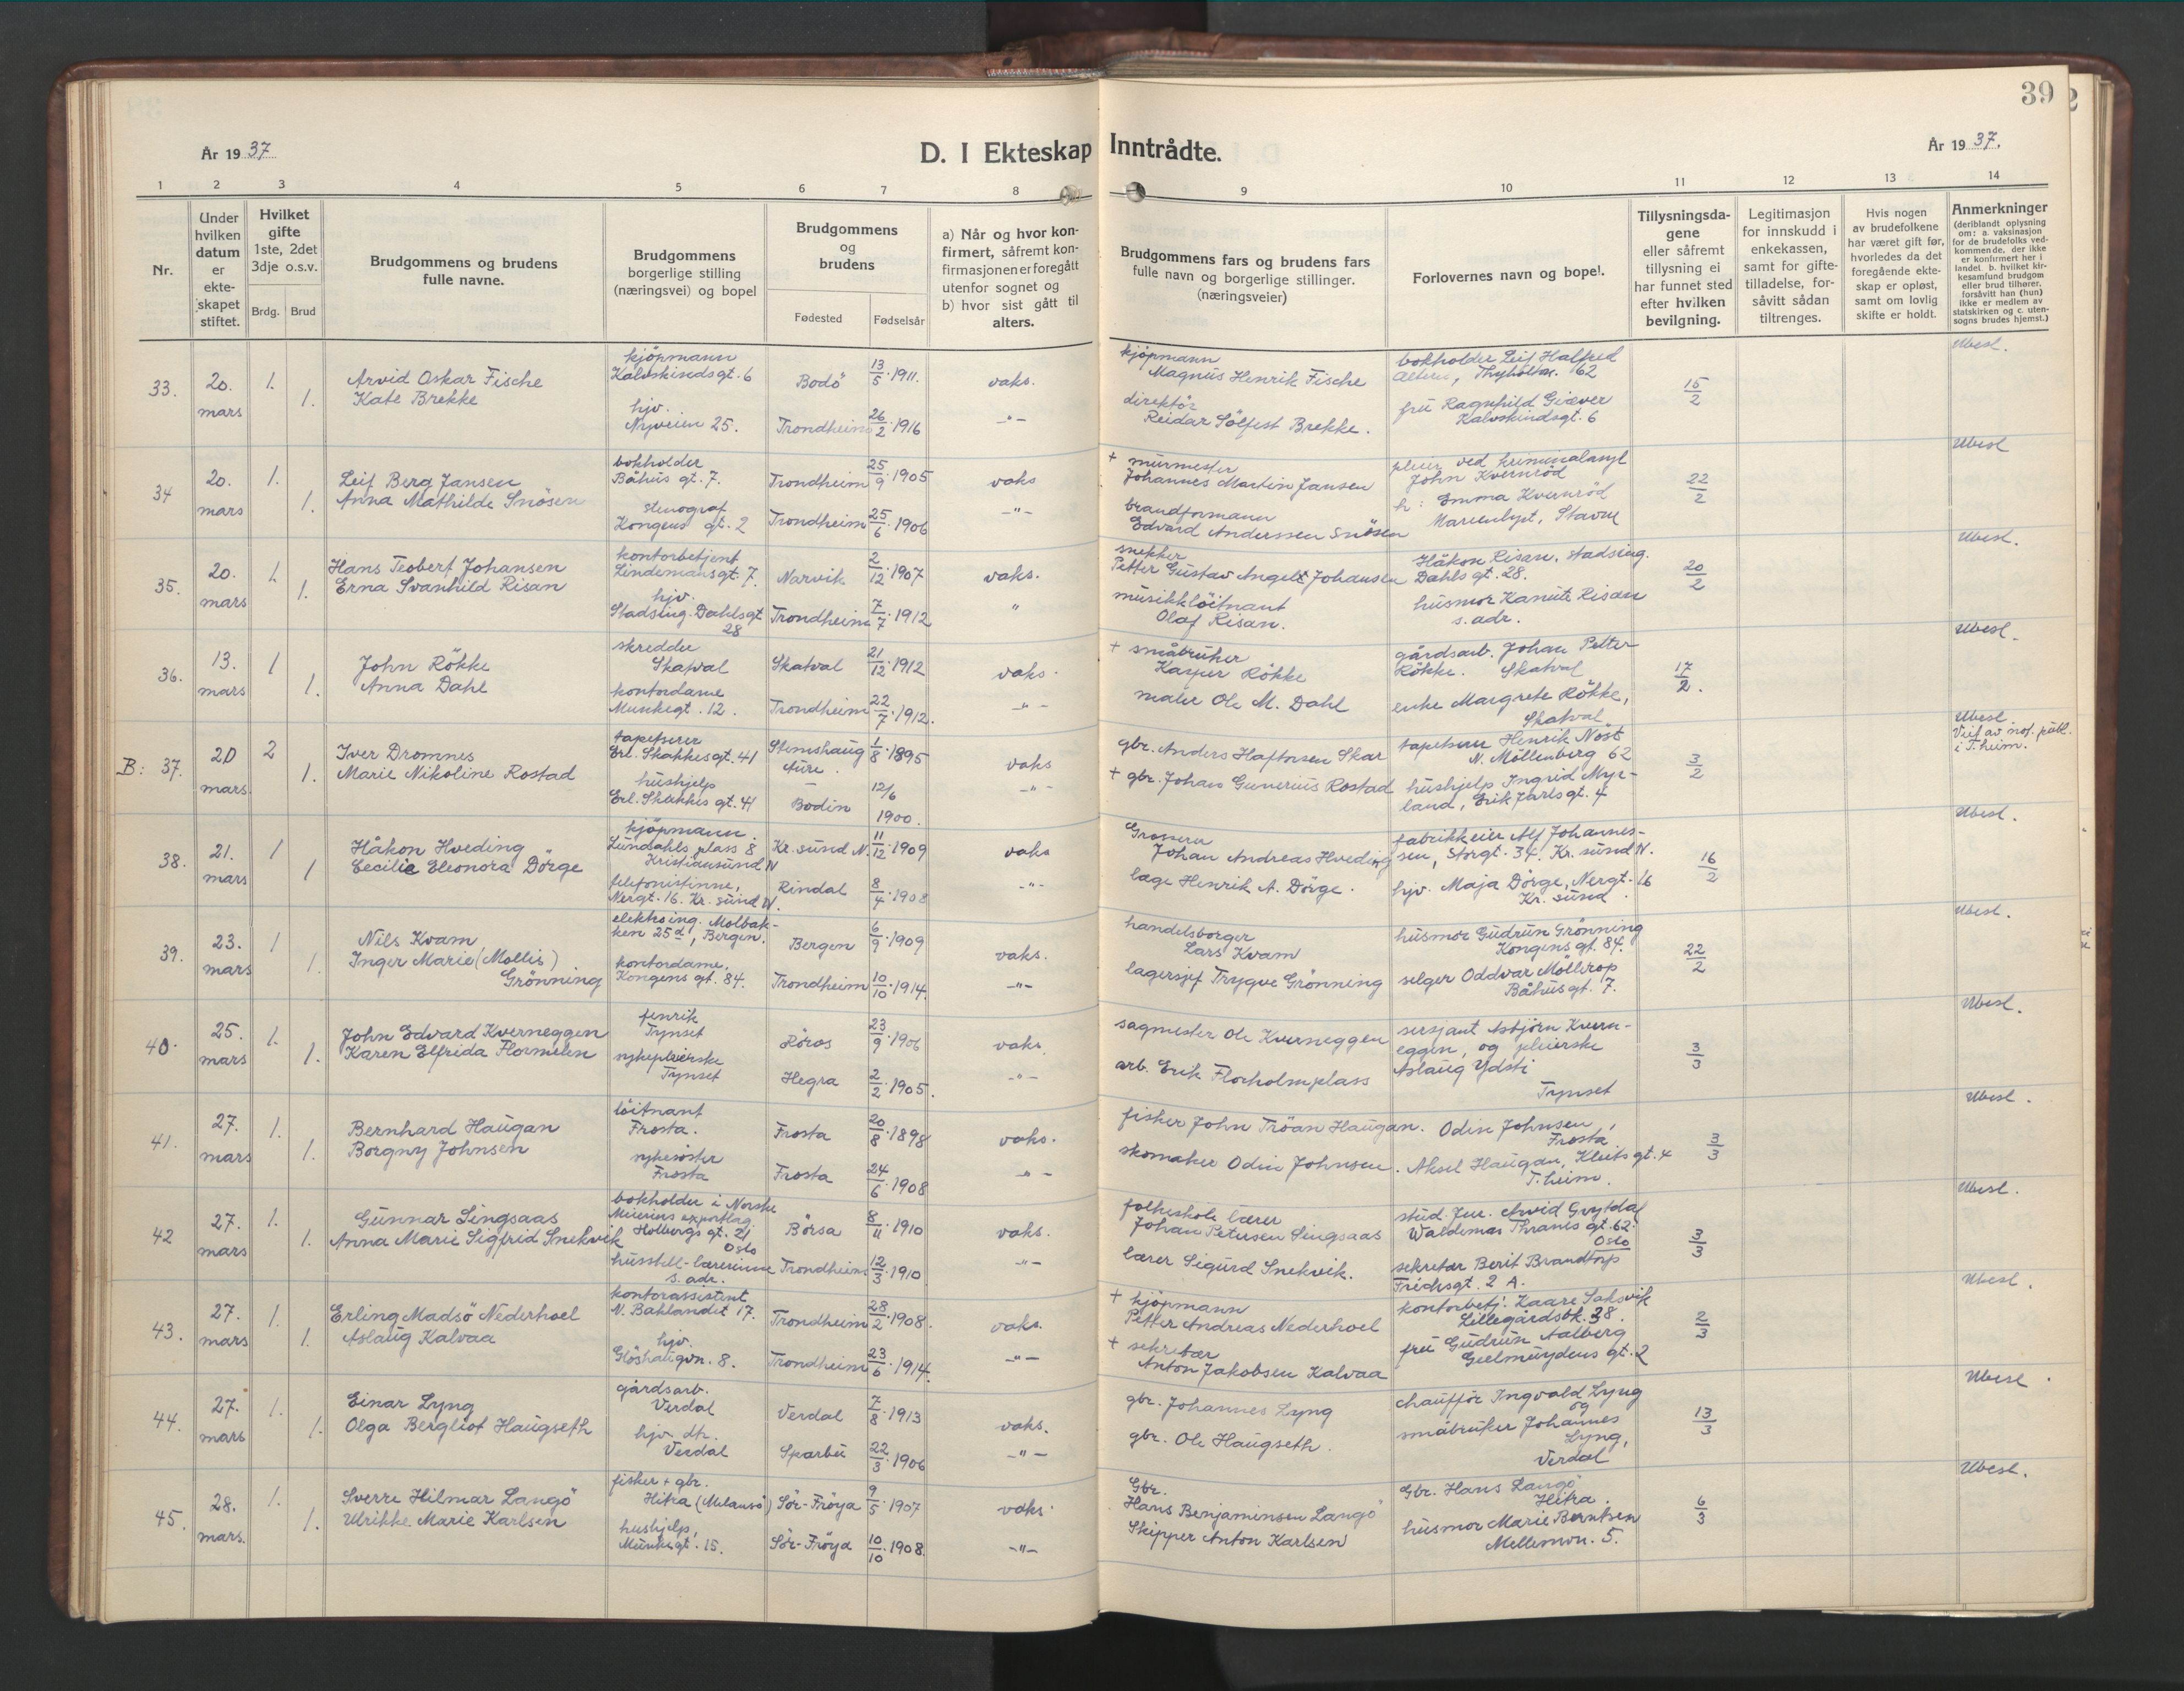 39
År 1937
D. I Ekteskap Inntrådte.
År 1937.
1 2 3 4 5 6 7 8 9 10 11 12 13 14
Nr.
Under hvilken datum er ekteskapet stiftet.
Hvilket gifte 1ste, 2det 3dje o.s.v.
Brdg. Brud
Brudgommens og brudens fulle navne.
Brudgommens borgerlige stilling (næringsvei) og bopel
Brudgommens og brudens
Fødested Fødselsår
a) Når og hvor konfirmert, såfremt konfirmasjonen er foregått utenfor sognet og b) hvor sist gått til alters.
Brudgommens fars og brudens fars fulle navn og borgerlige stillinger. (næringsveier)
Forlovernes navn og bopel.
Tillysningsdagene eller såfremt tillysning ei har funnet sted efter hvilken bevilgning.
Legitimasjon for innskudd i enkekassen, samt for giftetilladelse, forsåvitt sådan tiltrenges.
Hvis nogen av brudefolkene har været gift før, hvorledes da det foregående ekteskap er opløst, samt om lovlig skifte er holdt.
Anmerkninger (deriblandt oplysning om: a. vaksinasjon for de brudefolks vedkommende, der ikke er konfirmert her i landet b. hvilket kirkesamfund brudgom eller brud tilhører, forsåvitt han (hun) ikke er medlem av statskirken og c. utensogns brudes hjemst.)
33. 20. mars 1. Arvid Oskar Fische kjöpmann Kalvskindsgt. 6 Bodö 13/5 1911. vaks. kjöpmann Magnus Henrik Fische bokholder Leif Halfred 62 15/2 Ubesl.
1. Kate Brekke hjv. Nyveien 25. Trondheim 26/2 1916 -"- direktör Reidar Sölfest Brekke. frü Ragnhild Giæver Kalvskindsgt. 6
34 20. mars 1. Leif Berg Jansen bokholder Båhus gt. 7. Trondheim 25/9 1905 vaks + murmester Johannes Martin Jansen pleier ved kriminalasyl John Kvernröd 22/2 Ubesl
1. Anna Mathilde Snösen stenograf Kongens gt. 2 Trondheim 25/6 1906 -"- brandformann Edvard Anderssen Snösen h: Emma Kvernröd Marienlyst, Stavne
35. 20. mars 1. Hans Teobert Johansen kontorbetjent Lindemansgt. 7. Narvik 2/12 1907 vaks. snekker Petter Gustav Angelt Johansen Håkon Risan, stadsing. Dahlsgt. 28. 20/2 Ubesl.
1. Erna Svanhild Risan hjv. Stadsing. Dahlsgt 28 Trondheim 7/7 1912 " musikklöitnant Olaf Risan. husmor Kanute Risan s. adr.
36. 13. mars 1 John Rökke skredder Skatval Skatval 21/12 1912 vaks. + småbruker Kasper Rökke gårdsarb. Johan Petter Rökke. Skatval 17/2. Ubesl.
1. Anna Dahl kontordame Munkegt. 12. Trondheim 22/7 1912. -"- maler Ole M. Dahl enke Margrete Rökke, Skatval
B: 37. 20 mars 2 Iver Dromnes tapetserer Erl. Skakkesgt. 41 Stemshaug Aure. 1/8 1895 vaks gbr. Anders Haftorsen Skar tapetserer Henrik Nöst N. Möllenberg 62 3/2 Ubesl. Viet av not. publ. i T.heim.
1. Marie Nikoline Rostad hushjelp Erl. Skakkes gt. 41 Bodin 12/6 1900. -"- + gbr. Johan Gunerius Rostad hushjelp Ingrid Myrland, Erik Jarlsgt. 4
38. 21. mars 1 Håkon Hveding kjöpmann. Lundahls plass 8 Kristiansund N Kr. sund N. 11/12 1909 vaks Grosserer Johan Andreas Hveding fabrikkeier Alf Johannessen, Storgt. 34. Kr. sund N. 16/2 Ubesl.
1 Cecilie Eleonora Dörge telefonistinne, Nergt. 16. Kr. sund N. Rindal 8/4 1908 -"- læge Henrik A. Dörge. hjv. Maja Dörge, Nergt. 16 Kr. sund.
39. 23. mars 1 Nils Kvam elektroing. Molbakken 25d, Bergen. Bergen 6/9 1909 vaks. handelsborger Lars Kvam husmor Gudrun Grönning Kongens gt. 84. 22/2 Ubesl.
1. Inger Marie (Mollis) Grönning kontordame, Kongens gt. 84. Trondheim 10/10 1914. -"- lagersjef Trygve Grönning selger Oddvar Möllerop Båhusgt. 7.
40. 25. mars 1. John Edvard Kverneggen fenrik Tynset Röros 23/9 1906 vaks. sagmester Ole Kverneggen sersjant Asbjörn Kverneggen, og pleierske 3/3 Ubesl.
1. Karen Elfrida Flormelen sykepleierske Tynset Hegra 2/2 1905. -"- arb. Erik Florholmplass Aslaug Ydsti Tynset
41. 27. mars 1. Bernhard Haugan löitnant Frosta. Frosta 20/8 1898 vaks. fisker John Tröan Haugan. Odin Johnsen, Frosta 3/3 Ubesl.
1. Borgny Johnsen sykesöster Frosta Frosta 24/6 1908 -"- skomaker Odin Johnsen. Aksel Haugan, Kleits gt. 4 T.heim.
42 27. mars 1. Gunnar Singsaas bokholder i Norske Meieriers exportlag Holbergs gt. 21 Oslo Börsa 8/11 1910 vaks. folkeskole lærer Johan Petersen Singsaas stud. Jur. Arvid Grytdal Waldemar Thranes gt. 62. Oslo 3/3 Ubesl.
1. Anna Marie Sigfrid Snekvik husstell-lærerinne s. adr. Trondheim 12/3 1910 -"- lærer Sigurd Snekvik. sekretær Berit Brandtorp Fredesgt. 2 A.
43. 27. mars 1. Erling Madsö Nederhoel kontorassistent N. Baklandet 17. Trondheim 28/2 1908. vaks. + kjöpmann Petter Andreas Nederhoel kontorbetj. Kaare Saksvik Lillegårdsbk. 38. 2/3 Ubesl.
1. Aslaug Kalvaa hjv. Glöshaugvn. 8. Trondheim 23/6 1914. -"- + sekretær Anton Jakobsen Kalvaa frü Gudrun Aalberg Geelmuydens gt. 2
44. 27. mars 1. Einar Lyng gårdsarb. Verdal Verdal 7/8 1913 vaks. gbr. Johannes Lyng chauffför Ingvald Lyng og 13/3 Ubesl.
1. Olga Bergliot Haugseth hjv. dtr. Verdal Sparbu 22/3 1906 -"- gbr. Ole Haugseth. småbruker Johannes Lyng, Verdal
45. 28. mars. 1. Sverre Hilmar Langö fisker + gbr. Hitra (Melansö) Sör-Fröya 9/5 1907 vaks. Gbr. Hans Benjaminsen Langö Gbr. Hans Langö Hitra. 6/3 Ubesl.
1. Ulrikke Marie Karlsen hushjelp, Munkegt. 15. Sör-Fröya 10/10 1908. -"- Skipper Anton Karlsen husmor Marie Berntsen Mellemvn. 5.